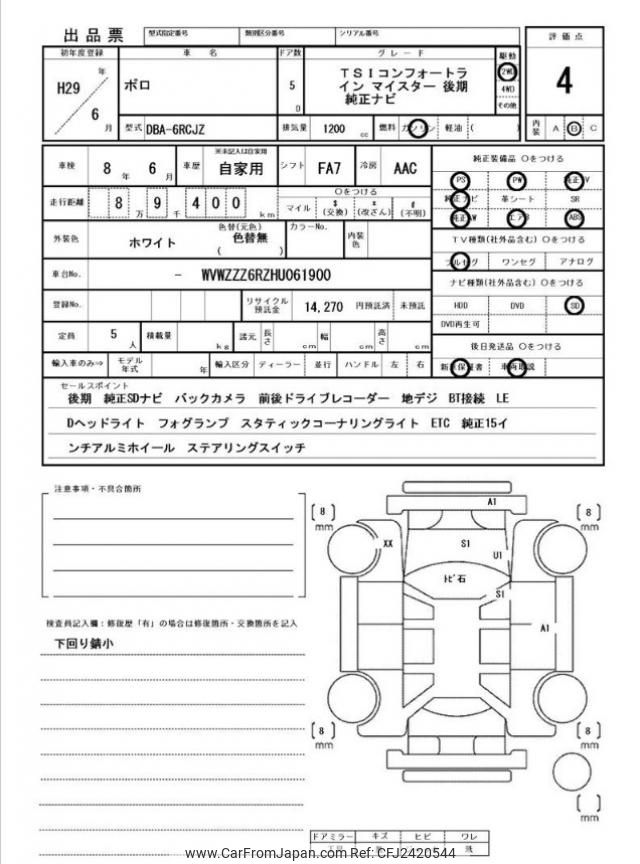 出品票 型式指定番号 類別区分番号 シリアル番号
評価点
初年度登録 車名 ドア数 グレード 駆動
H29 年 6 月
ポロ
5 D
TSIコンフォートラ
イン マイスター 後期
純正ナビ
2WD
4WD
その他
4
型式 DBA-6RCJZ 排気量 1200 cc 燃料 ガソリン 軽油 ( )
内装 A B C
車検 8 年 6 月 車歴 ※未記入は自家用 自家用 シフト FA7 冷房 AAC
純正装備品 ○をつける
PS PW 純正TV
走行距離 8 万 9 千 4 0 0 km
○をつける
マイル $ (交換) * (改ざん) # (不明)
純正ナビ 革シート SR
純正AW エアB ABS
外装色 ホワイト 色替(元色) 色替無 ( ) カラーNo. 内装色
TV種類(社外品含む) ○をつける
フルセグ ワンセグ アナログ
車台No. - WVWZZZ6RZHU061900
ナビ種類(社外品含む) ○をつける
登録No. リサイクル預託金 14,270 円預託済 未預託
HDD DVD SD
DVD再生可
定員 5 人 積載量 kg 諸元 長さ cm 幅 cm 高さ cm
後日発送品 ○をつける
輸入車のみ⇒ モデル年式 年 輸入区分 ディーラー 並行 ハンドル 左 右
新車保証書 車両取説
セールスポイント
後期 純正SDナビ バックカメラ 前後ドライブレコーダー 地デジ BT接続 LE
Dヘッドライト フォグランプ スタティックコーナリングライト ETC 純正15イ
ンチアルミホイール ステアリングスイッチ
注意事項・不具合箇所
検査員記入欄：修復歴「有」の場合は修復箇所・交換箇所を記入
下回り錆小
A1
[8] mm
[8] mm
XX
S1
U1
トビ石
S1
A1
[8] mm
[8] mm
[ ] mm
ドアミラー キズ ヒビ ワレ
www.CarFromJapan.com Ref: CFJ2420544